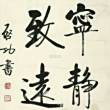 寧静
致遠
啓功書